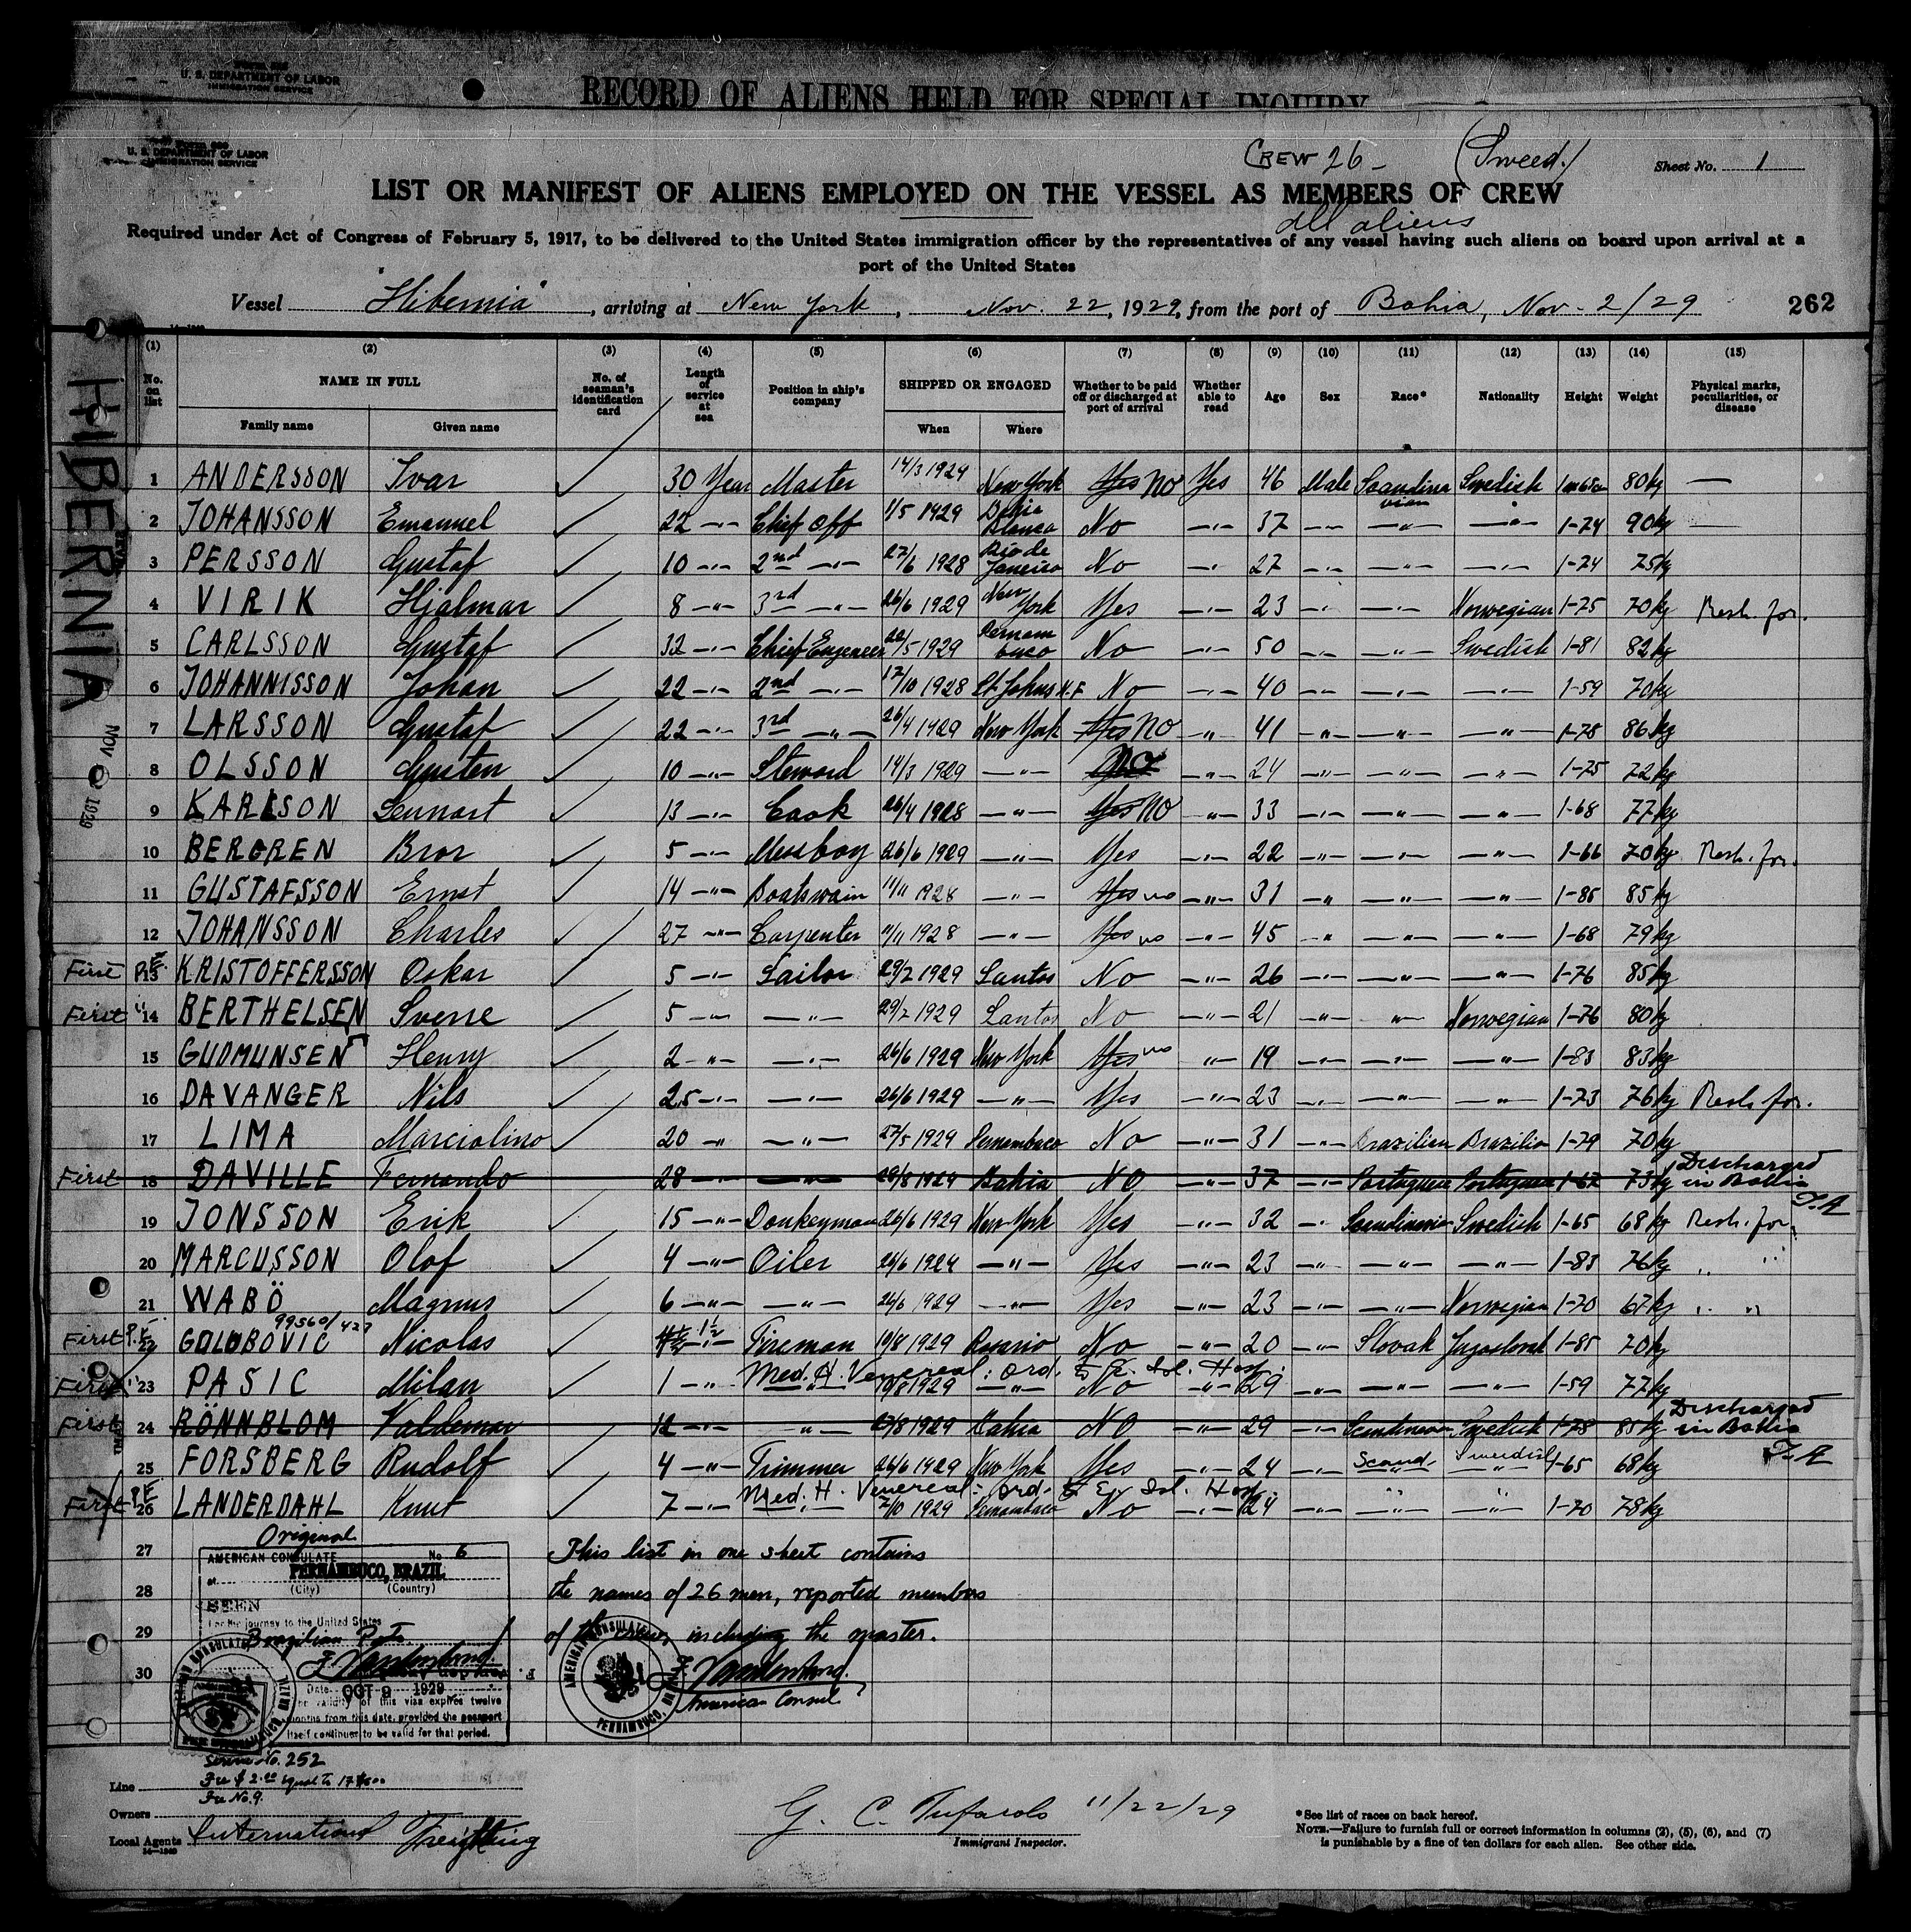 U. S. DEPARTMENT OF LABOR
IMMIGRATION SERVICE
RECORD OF ALIENS HELD FOR SPECIAL INQUIRY
U. S. DEPARTMENT OF LABOR
IMMIGRATION SERVICE
CREW 26 - (Sweed.) Sheet No. 1
LIST OR MANIFEST OF ALIENS EMPLOYED ON THE VESSEL AS MEMBERS OF CREW
all aliens
Required under Act of Congress of February 5, 1917, to be delivered to the United States immigration officer by the representatives of any vessel having such aliens on board upon arrival at a
port of the United States
Vessel "Hibernia", arriving at New York, Nov. 22, 1929, from the port of Bahia, Nov. 2/29 262
HIBERNIA
NOV 1929
(1) (2) (3) (4) (5) (6) (7) (8) (9) (10) (11) (12) (13) (14) (15)
No. on list NAME IN FULL Family name Given name No. of seaman's identification card Length of service at sea Position in ship's company SHIPPED OR ENGAGED When Where Whether to be paid off or discharged at port of arrival Whether able to read Age Sex Race* Nationality Height Weight Physical marks, peculiarities, or disease
1 ANDERSSON Ivar 30 Year Master 14/3 1929 New York Yes No Yes 46 Male Scandinavian Swedish 1m65cm 80kg —
2 JOHANSSON Emanuel 22 -"- Chief Off 1/5 1929 Bahia Blanca No -"- 37 -"- -"- -"- 1-74 90kg —
3 PERSSON Gustaf 10 -"- 2nd -"- 27/6 1928 Rio de Janeiro No -"- 27 -"- -"- -"- 1-74 75kg
4 VIRIK Hjalmar 8 -"- 3rd -"- 26/6 1929 New York Yes -"- 23 -"- -"- Norwegian 1-75 70kg Resh. for.
5 CARLSSON Gustaf 32 -"- Chief Engeneer 22/5 1929 Pernambuco No -"- 50 -"- -"- Swedish 1-81 82kg
6 JOHANNISSON Johan 22 -"- 2nd -"- 17/10 1928 St Johns N.F No -"- 40 -"- -"- -"- 1-59 70kg
7 LARSSON Gustaf 22 -"- 3rd -"- 26/4 1929 New York Yes No -"- 41 -"- -"- -"- 1-78 86kg
8 OLSSON Gusten 10 -"- Steward 14/3 1929 -"- No -"- 24 -"- -"- -"- 1-75 72kg
9 KARLSON Lennart 13 -"- Cook 26/4 1928 -"- Yes No -"- 33 -"- -"- -"- 1-68 77kg
10 BERGREN Bror 5 -"- Messboy 26/6 1929 -"- Yes -"- 22 -"- -"- -"- 1-66 70kg Resh. for.
11 GUSTAFSSON Ernst 14 -"- Boatswain 11/11 1928 -"- Yes no -"- 31 -"- -"- -"- 1-85 85kg
12 JOHANSSON Charles 27 -"- Carpenter 11/11 1928 -"- Yes no -"- 45 -"- -"- -"- 1-68 79kg
First P.E. 13 KRISTOFFERSSON Oskar 5 -"- Sailor 29/7 1929 Santos No -"- 26 -"- -"- -"- 1-76 85kg
First " 14 BERTHELSEN Sverre 5 -"- -"- 29/7 1929 Santos No -"- 21 -"- -"- Norwegian 1-76 80kg
15 GUDMUNSEN Henry 2 -"- -"- 26/6 1929 New York Yes no -"- 19 -"- -"- -"- 1-83 83kg
16 DAVANGER Nils 25 -"- -"- 26/6 1929 -"- Yes -"- 23 -"- -"- -"- 1-73 76kg Resh for.
17 LIMA Marciolino 20 -"- -"- 27/5 1929 Pernambuco No -"- 31 -"- Brazilian Brazilio 1-79 70kg
First 18 DAVILLE Fernando 28 -"- 29/8 1929 Bahia NO -"- 37 -"- Portuguese Portuguese 1-67 73kg Discharged in Bahia F.A
19 JONSSON Erik 15 -"- Donkeyman 26/6 1929 New York Yes -"- 32 -"- Scandinavia Swedish 1-65 68kg Resh. for.
20 MARCUSSON Olof 4 -"- Oiler 26/6 1929 -"- Yes -"- 23 -"- -"- -"- 1-83 76kg " "
21 WABÖ Magnus 6 -"- -"- 26/6 1929 -"- Yes -"- 23 -"- -"- Norwegian 1-70 67kg " "
99560/427
First P.E. 22 GOLUBOVIC Nicolas 1½ -"- Fireman 10/8 1929 Rosario No -"- 20 -"- Slovak Jugoslovak 1-85 70kg
Med. H. Venereal: Ord. to E. Isl. Hosp.
First " 23 PASIC Milan 1 -"- -"- 10/8 1929 -"- No -"- 29 -"- -"- -"- 1-59 77kg
First 24 RÖNNBLOM Valdemar 12 -"- -"- 29/8 1929 Bahia NO -"- 29 -"- Scandinavia Swedish 1-78 85kg Discharged in Bahia F.A
25 FORSBERG Rudolf 4 -"- Trimmer 26/6 1929 New York Yes -"- 24 -"- Scand. Swedish 1-65 68kg
Med. H. Venereal: Ord. to E. Isl. Hosp.
First P.E. 26 LANDERDAHL Knut 7 -"- -"- 7/10 1929 Pernambuco No -"- 24 -"- " " 1-70 78kg
27
28
29
30
Original
AMERICAN CONSULATE No 6
at PERNAMBUCO, BRAZIL
(City) (Country)
SEEN
For the journey to the United States
Brazilian Ports
Date OCT 9 1929
The validity of this visa expires twelve
months from this date, provided the passport
itself continues to be valid for that period.
AMERICAN CONSULATE PERNAMBUCO, BRAZIL
This list in one sheet contains
the names of 26 men, reported members
of the crew, including the master.
American Consul
AMERICAN CONSULATE PERNAMBUCO, BRAZIL
Service No. 252
Fee $2.00 equal to 17$600
Fee No. 9.
Line
Owners
Local Agents International Freighting
G. C. Tufarolo 11/22/29
Immigrant Inspector.
*See list of races on back hereof.
NOTE.—Failure to furnish full or correct information in columns (2), (5), (6), and (7)
is punishable by a fine of ten dollars for each alien. See other side.